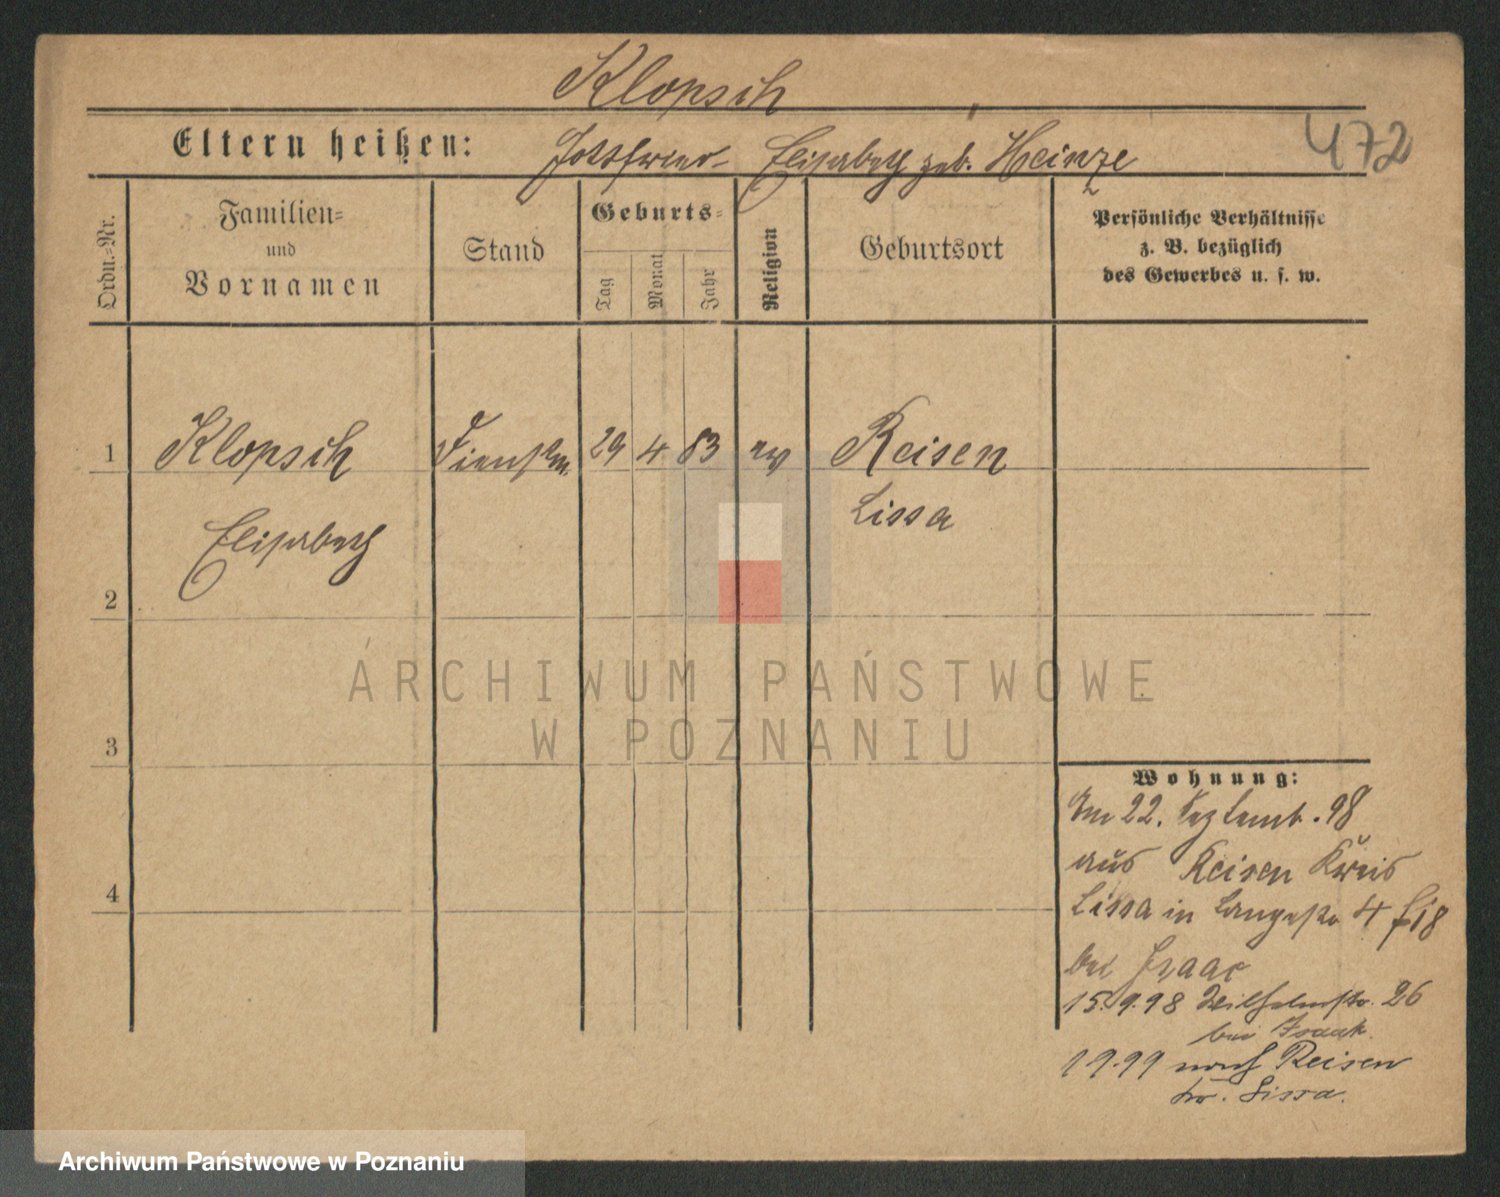 Klopsch
472
Eltern heißen: Gottfried Elisabeth geb. Heinze
Ordn.-Nr.
Familien-
und
Vornamen
Stand
Geburts-
Tag
Monat
Jahr
Religion
Geburtsort
Persönliche Verhältnisse
z. B. bezüglich
des Gewerbes u. s. w.
1 Klopsch Dienstm. 29 4 83 ev Reisen
Lissa
Elisabeth
2
3
4
ARCHIWUM PAŃSTWOWE
W POZNANIU
Wohnung:
Am 22. Septemb. 98
aus Reisen Kreis
Lissa in Langestr 4
bei Isaac
15.9.98 Wilhelmstr. 26
bei Isaak
1 9.99 nach Reisen
Kr. Lissa.
Archiwum Państwowe w Poznaniu